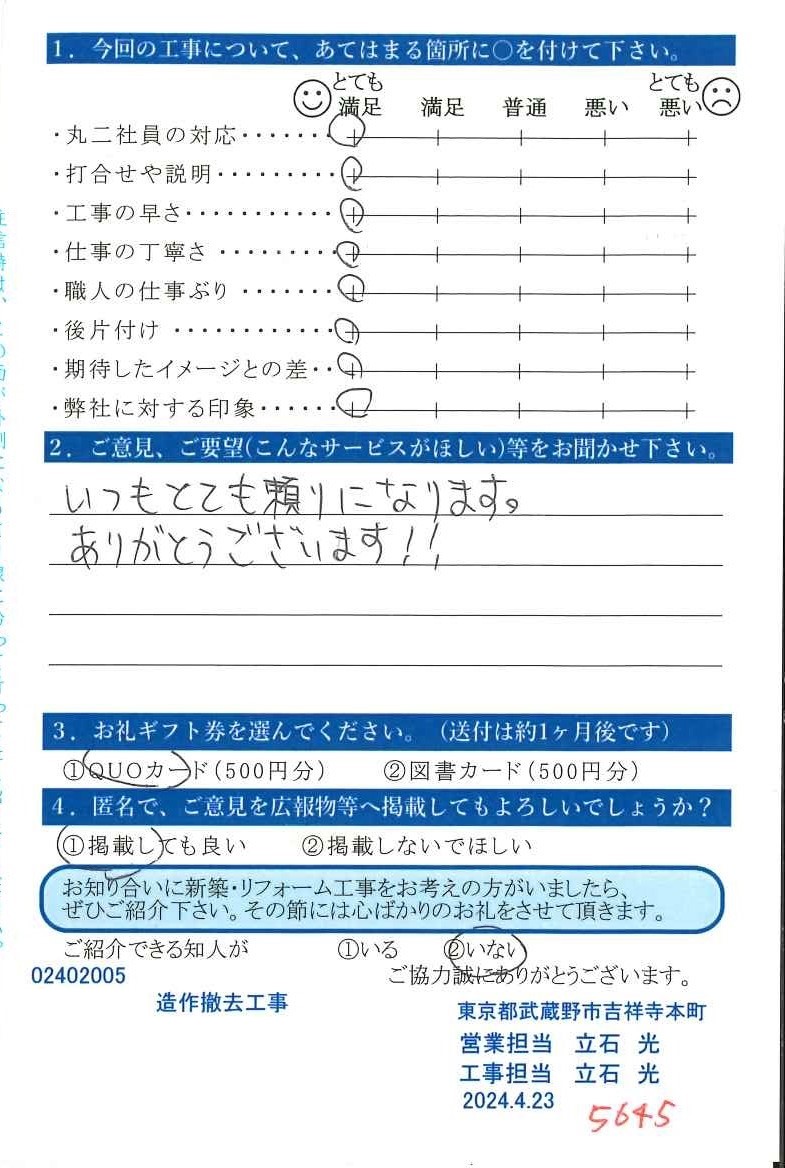 1．今回の工事について、あてはまる箇所に○を付けて下さい。
とても満足 満足 普通 悪い とても悪い
・丸二社員の対応・・・・・・・
・打合せや説明・・・・・・・・・
・工事の早さ・・・・・・・・・・・
・仕事の丁寧さ・・・・・・・・・
・職人の仕事ぶり・・・・・・・
・後片付け・・・・・・・・・・・・
・期待したイメージとの差・・
・弊社に対する印象・・・・・・
2．ご意見、ご要望(こんなサービスがほしい)等をお聞かせ下さい。
いつもとても頼りになります。
ありがとうございます!!
3．お礼ギフト券を選んでください。（送付は約1ヶ月後です）
①QUOカード(500円分) ②図書カード(500円分)
4．匿名で、ご意見を広報物等へ掲載してもよろしいでしょうか？
①掲載しても良い ②掲載しないでほしい
お知り合いに新築・リフォーム工事をお考えの方がいましたら、
ぜひご紹介下さい。その節には心ばかりのお礼をさせて頂きます。
ご紹介できる知人が ①いる ②いない
02402005 ご協力誠にありがとうございます。
造作撤去工事
東京都武蔵野市吉祥寺本町
営業担当 立石 光
工事担当 立石 光
2024.4.23
5645